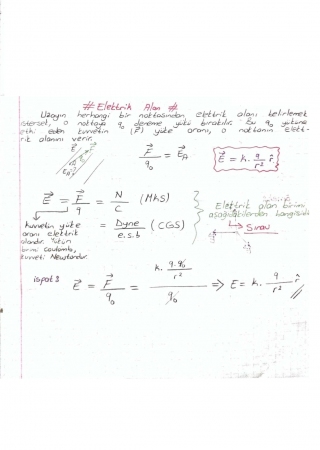 # Elektrik Alan #
Uzayın herhangi bir noktasından elektrik alanı belirlemek
istersek, o noktaya q₀ deneme yükü bırakılır. Bu q₀ yüküne
etki eden kuvvetin (F⃗) yüke oranı, o noktanın elekt-
rik alanını verir.
F⃗ / q₀ = E⃗_A
E⃗ = k. q/r² r̂
E⃗ = F⃗/q = N/C (MKS)
= Dyne/e.s.b (CGS)
Elektrik alan birimi
aşağıdakilerden hangisidir
→ Sınav
kuvvetin yüke
oranı elektrik
alandır. Yükün
birimi Coulomb,
kuvveti Newtondur.
ispat:
E⃗ = F⃗/q₀ = (k. q.q₀/r²)/q₀ ⇒ E = k. q/r² r̂